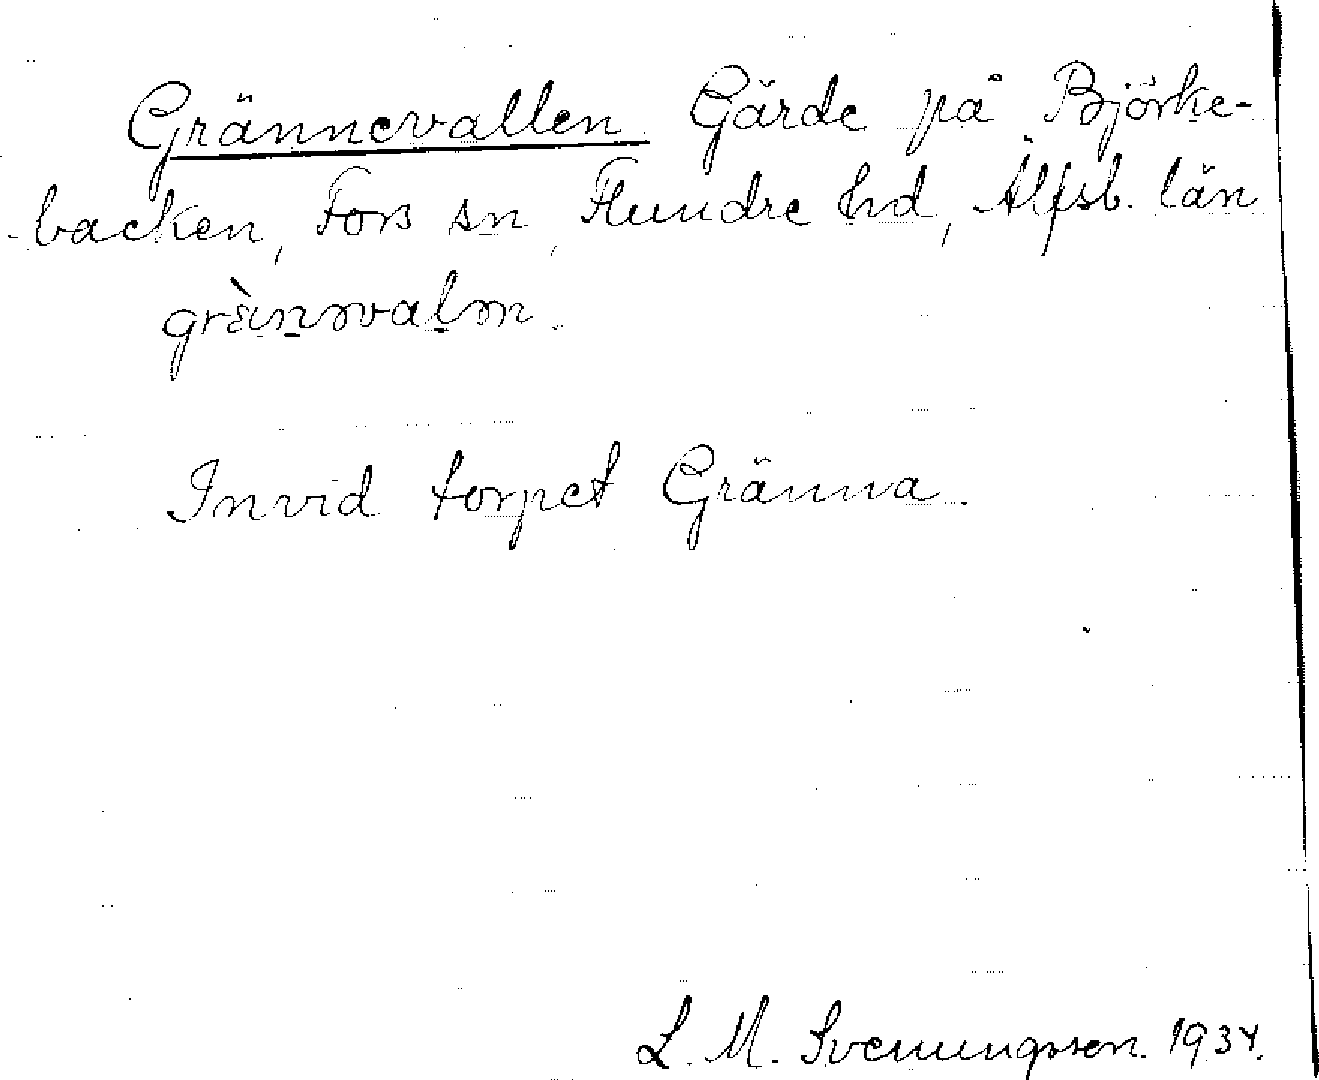 Grännevallen Gärde på Björke-
backen, Fors sn, Flundre hd, Älfsb. län
grànnəvalən.
Invid torpet Gränna.
L. M. Svenungsson. 1934.